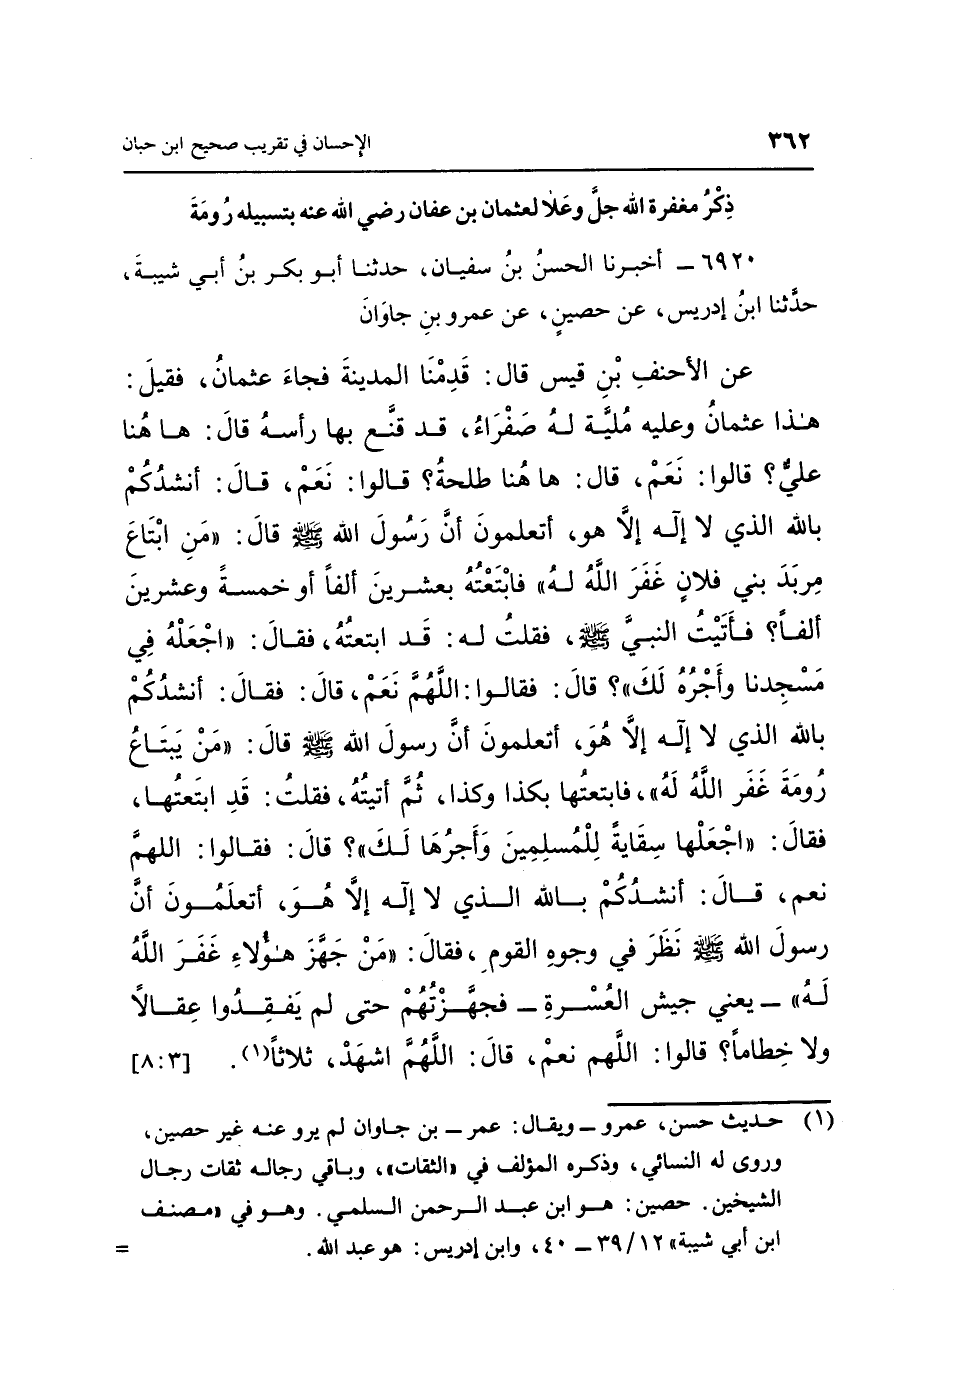 ٣٦٢
الإحسان في تقريب صحيح ابن حبان
ذِكْرُ مغفرة الله جلَّ وعَلا لعثمان بن عفان رضي الله عنه بتسبيله رُومَةَ
٦٩٢٠ ـ أخبرنا الحسنُ بنُ سفيان، حدثنا أبو بكر بنُ أبي شيبةَ،
حدَّثنا ابنُ إدريس، عن حصينٍ، عن عمرو بنِ جاوَانَ
عن الأحنفِ بْنِ قيس قال: قَدِمْنَا المدينةَ فجاءَ عثمانُ، فقيلَ:
هٰذا عثمانُ وعليه مُليَّة لـهُ صَفْرَاءُ، قـد قنَّع بها رأسـهُ قالَ: هـا هُنا
عليٌّ؟ قالوا: نَعَمْ، قال: ها هُنا طلحةُ؟ قـالوا: نَعَمْ، قـالَ: أنشدُكُمْ
بالله الذي لا إلٰـه إلَّا هو، أتعلمونَ أنَّ رَسُولَ الله ﷺ قالَ: «مَنِ ابْتَاعَ
مِربَدَ بني فلانٍ غَفَرَ اللَّهُ لـهُ» فابْتَعْتُهُ بعشـرينَ ألفاً أو خمسـةً وعشرينَ
ألفـاً؟ فـأَتَيْتُ النبيَّ ﷺ، فقلتُ لـه: قَـد ابتعتُه، فقـالَ: «اجْعَلْهُ فِي
مَسْجِدنا وأَجْرُهُ لَكَ»؟ قالَ: فقالـوا: اللَّهُمَّ نَعَمْ، قالَ: فقـالَ: أنشدُكُمْ
بالله الذي لا إلٰـه إلَّا هُوَ، أتعلمونَ أنَّ رسولَ الله ﷺ قالَ: «مَنْ يَبتَـاعُ
رُومَةَ غَفَر اللَّهُ لَهُ»، فابتعتُها بكذا وكذا، ثُمَّ أتيتُهُ، فقلتُ: قَدِ ابتَعتُهـا،
فقالَ: «اجْعَلْها سِقَايةً لِلْمُسلِمِينَ وَأَجرُهَا لَـكَ»؟ قالَ: فقـالوا: اللهمَّ
نعم، قـالَ: أنشـدُكُمْ بـالله الـذي لا إلٰـه إلَّا هُـوَ، أتعلَمُـونَ أنَّ
رسولَ الله ﷺ نَظَرَ في وجوهِ القومِ، فقالَ: «مَنْ جَهَّزَ هٰـؤُلاءِ غَفَرَ اللَّهُ
لَـهُ» ـ يعني جيش العُسْـرةِ ـ فجهَّـزْتُهُمْ حتى لم يَفـقِـدُوا عِقـالاً
ولا خِطاماً؟ قالوا: اللَّهم نعمْ، قالَ: اللَّهُمَّ اشهَدْ، ثلاثاً(١). [٣:٨]
(١) حـديث حسن، عمرو ـ ويقال: عمر ـ بن جـاوان لم يرو عنـه غير حصين،
وروى له النسائي، وذكـره المؤلف في «الثقات»، وبـاقي رجالـه ثقات رجـال
الشيخين. حصين: هـو ابن عبـد الـرحمن السلمي. وهـو في «مصنـف
ابن أبي شيبة» ١٢/٣٩ ـ ٤٠، وابن إدريس: هو عبد الله.
=